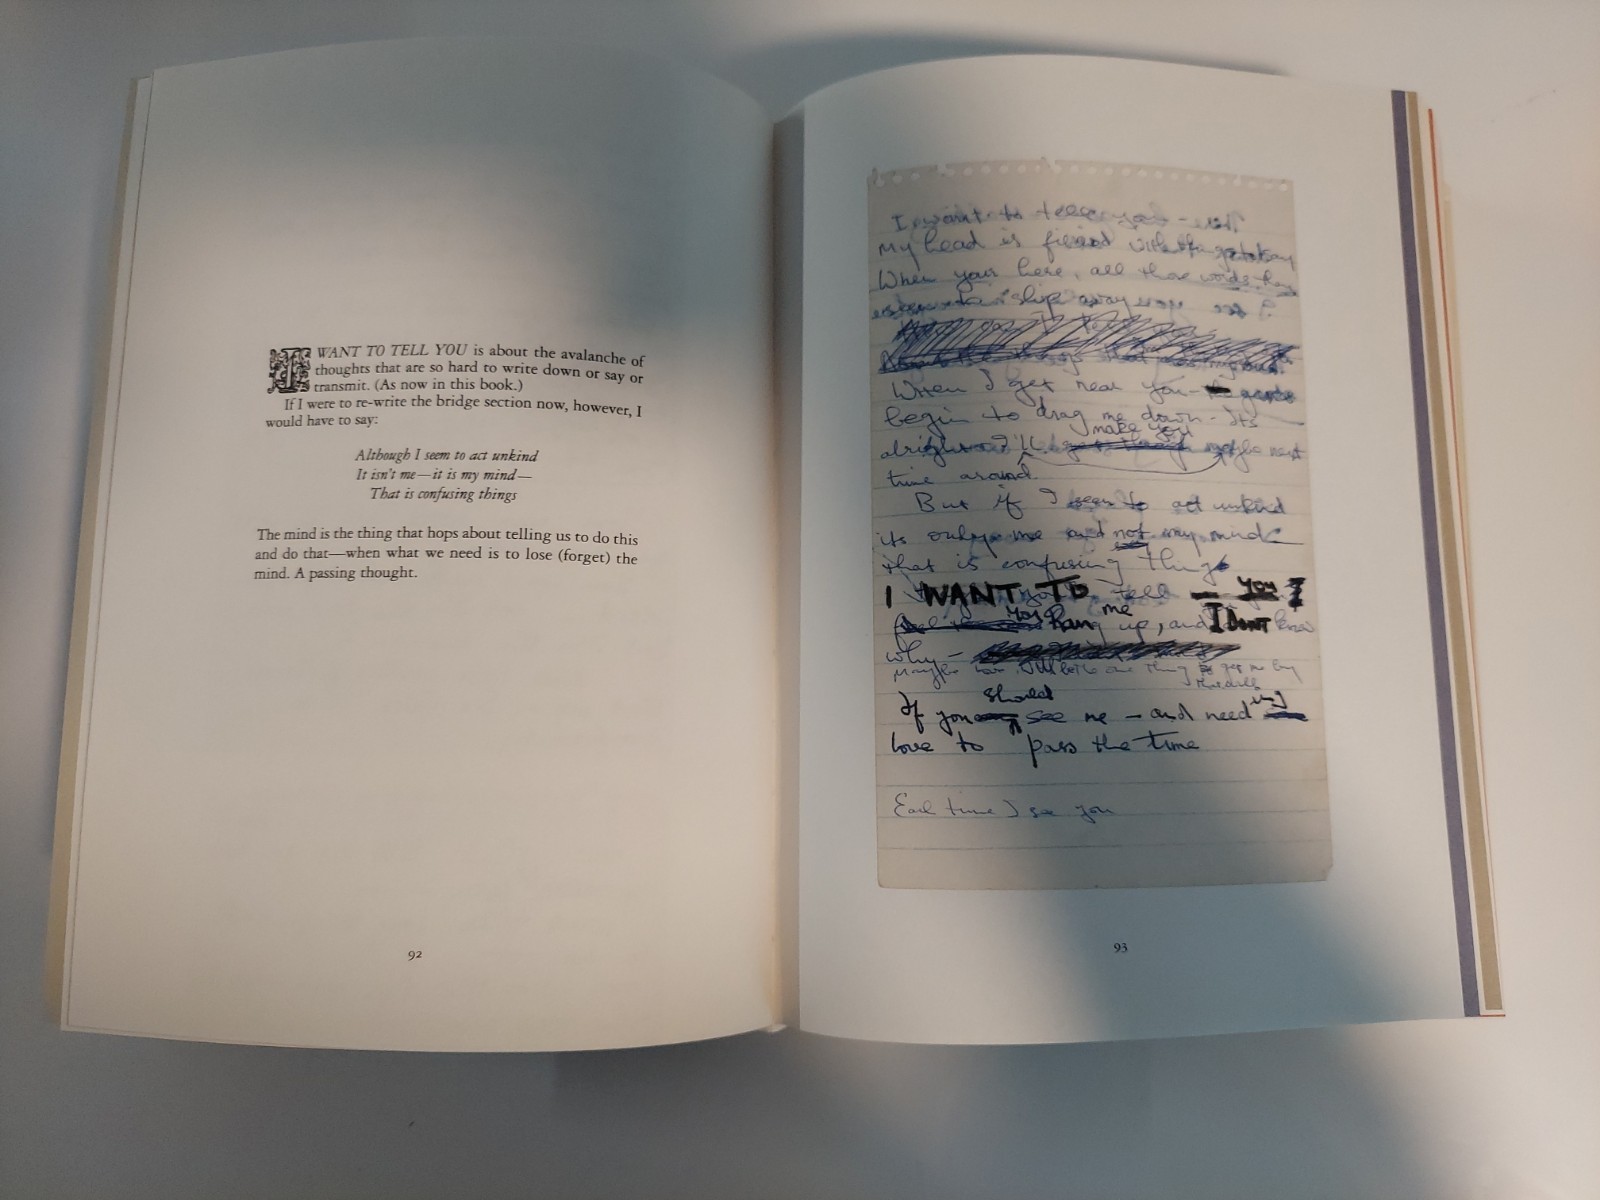 I WANT TO TELL YOU is about the avalanche of
thoughts that are so hard to write down or say or
transmit. (As now in this book.)
If I were to re-write the bridge section now, however, I
would have to say:
Although I seem to act unkind
It isn't me—it is my mind—
That is confusing things
The mind is the thing that hops about telling us to do this
and do that—when what we need is to lose (forget) the
mind. A passing thought.
92
I want to tell you -
My head is filled with things to say
When your here, all those words they
slip away
When I get near you -
begin to drag me down - Its
make you
alright I'll maybe next
time around.
But if I seem to act unkind
its only me and not my mind
that is confusing things
I WANT TO tell you I
you hang me up, and I DONT know
why -
should
If you see me - and need
love to pass the time
Each time I see you
93